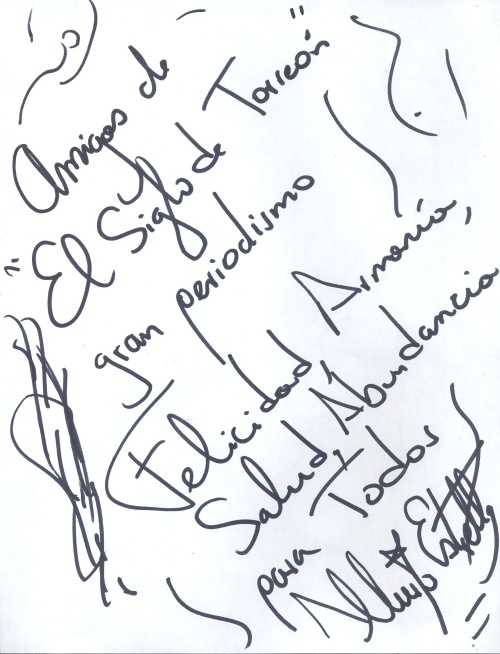 Amigos de
"El Siglo de Torreón"
gran periodismo
Felicidad Armonía,
Salud, Abundancia
para Todos